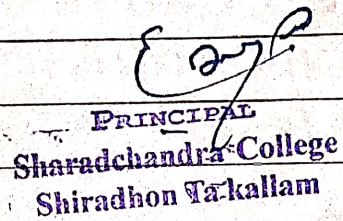 PRINCIPAL
Sharadchandra College
Shiradhon Ta-kallam